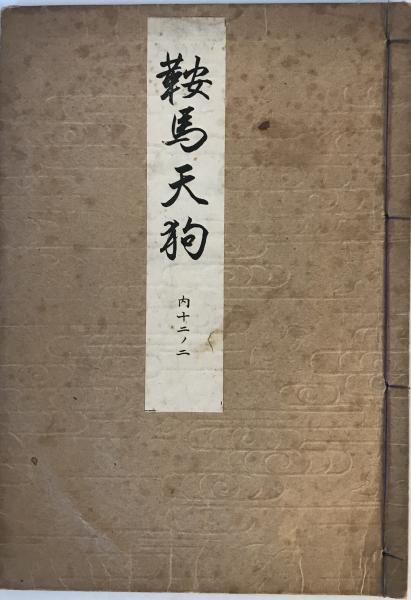 鞍馬天狗
内十二ノ二